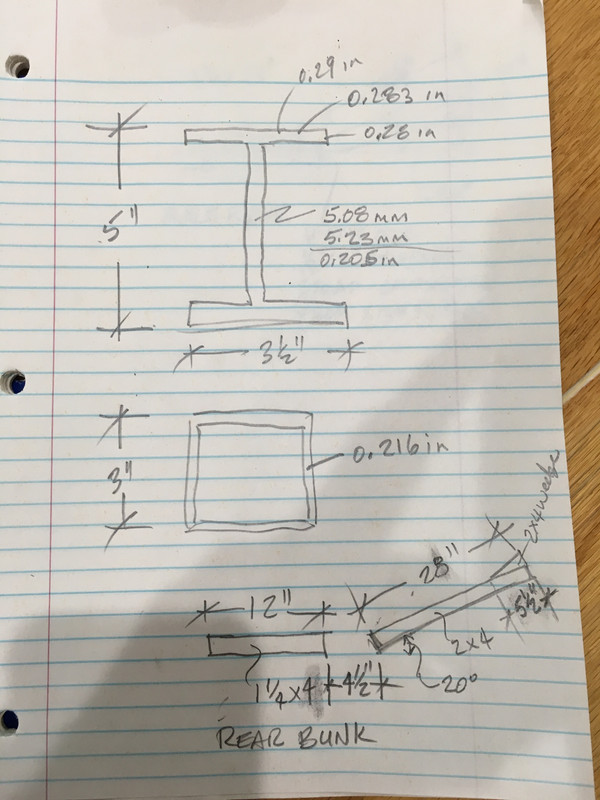 0.29 in
0.283 in
0.28 in
5"
5.08mm
5.23mm
0.205in
3½"
3"
0.216in
2x4 wedge
28"
12"
5½"
2x4
1¼x4
4½"
20°
REAR BUNK